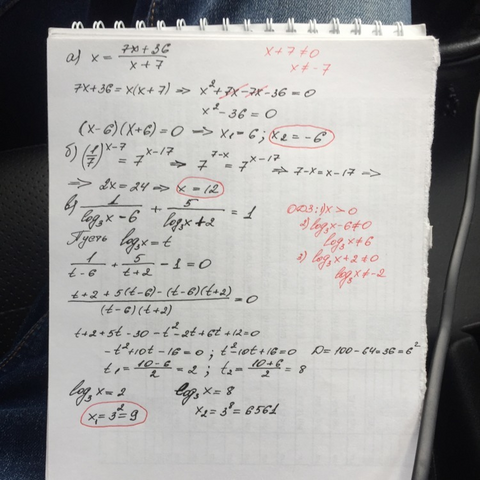 а) x = (7x+36)/(x+7)
x+7≠0
x≠-7
7x+36 = x(x+7) => x²+7x-7x-36=0
x²-36=0
(x-6)(x+6)=0 => x₁=6; x₂=-6
б) (1/7)^(x-7) = 7^(x-17) => 7^(7-x) = 7^(x-17) => 7-x=x-17 =>
=> 2x=24 => x=12
в) 1/(log₃x-6) + 5/(log₃x+2) = 1
ОДЗ: 1) x>0
2) log₃x-6≠0
log₃x≠6
3) log₃x+2≠0
log₃x≠-2
Пусть log₃x=t
1/(t-6) + 5/(t+2) - 1 = 0
(t+2+5(t-6)-(t-6)(t+2))/((t-6)(t+2)) = 0
t+2+5t-30-t²-2t+6t+12=0
-t²+10t-16=0; t²-10t+16=0 D=100-64=36=6²
t₁=(10-6)/2=2; t₂=(10+6)/2=8
log₃x=2 log₃x=8
x₁=3²=9 x₂=3⁸=6561